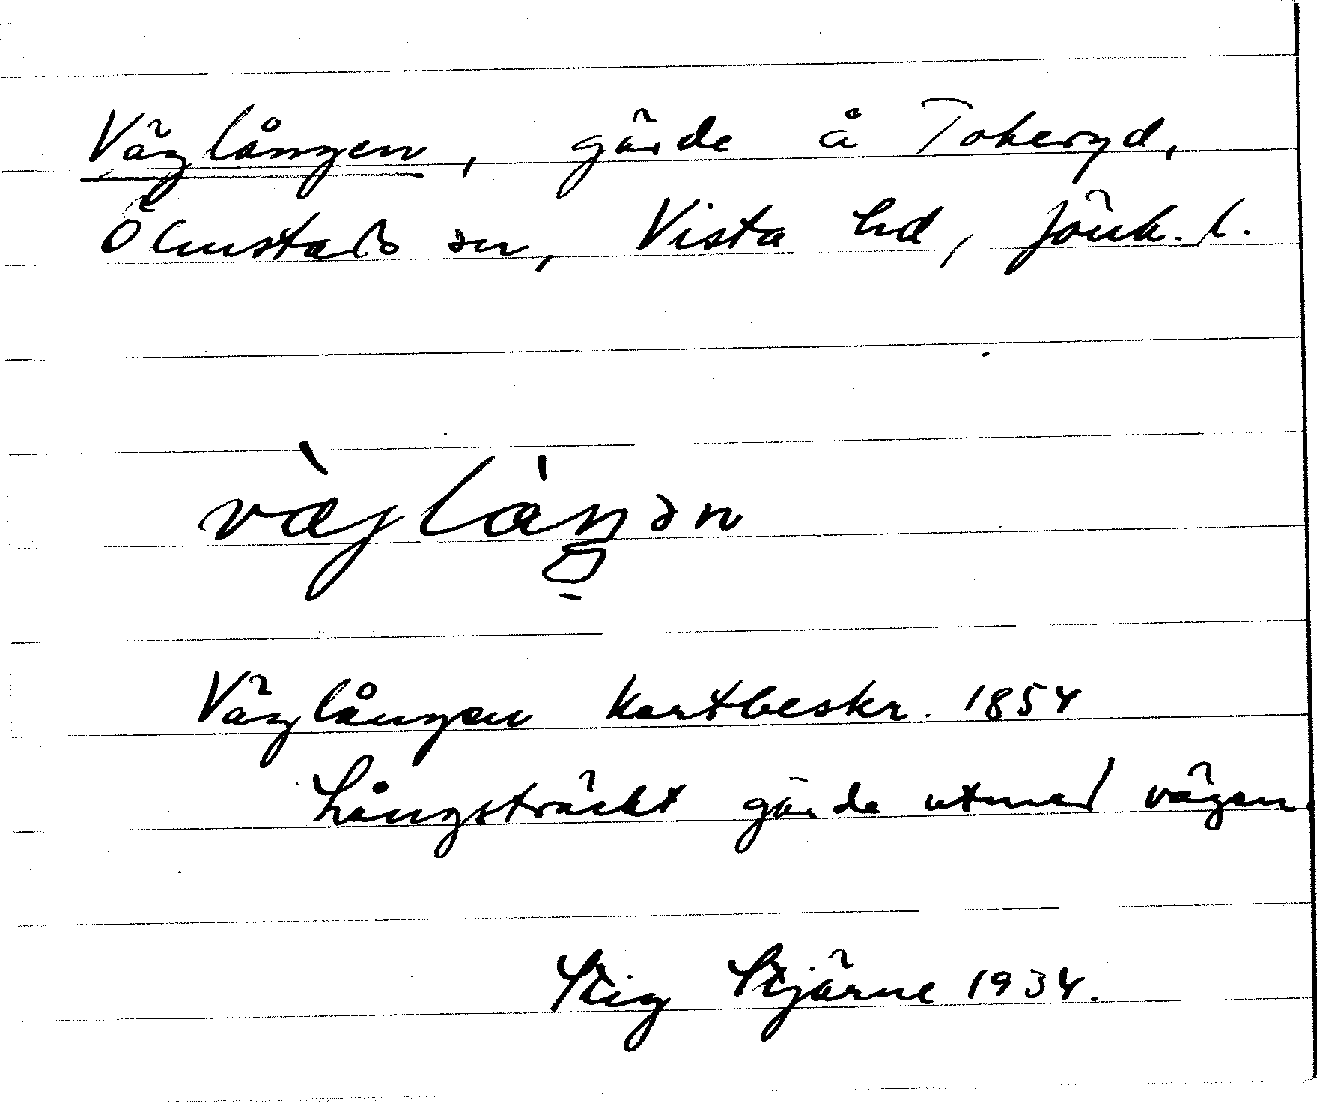 Väglången, gärde å Tokeryd,
Ölmstads sn, Vista hd, Jönk. l.
Väglången kartbeskr. 1854
Långsträckt gärde utmed vägen.
Stig Stjärne 1934.